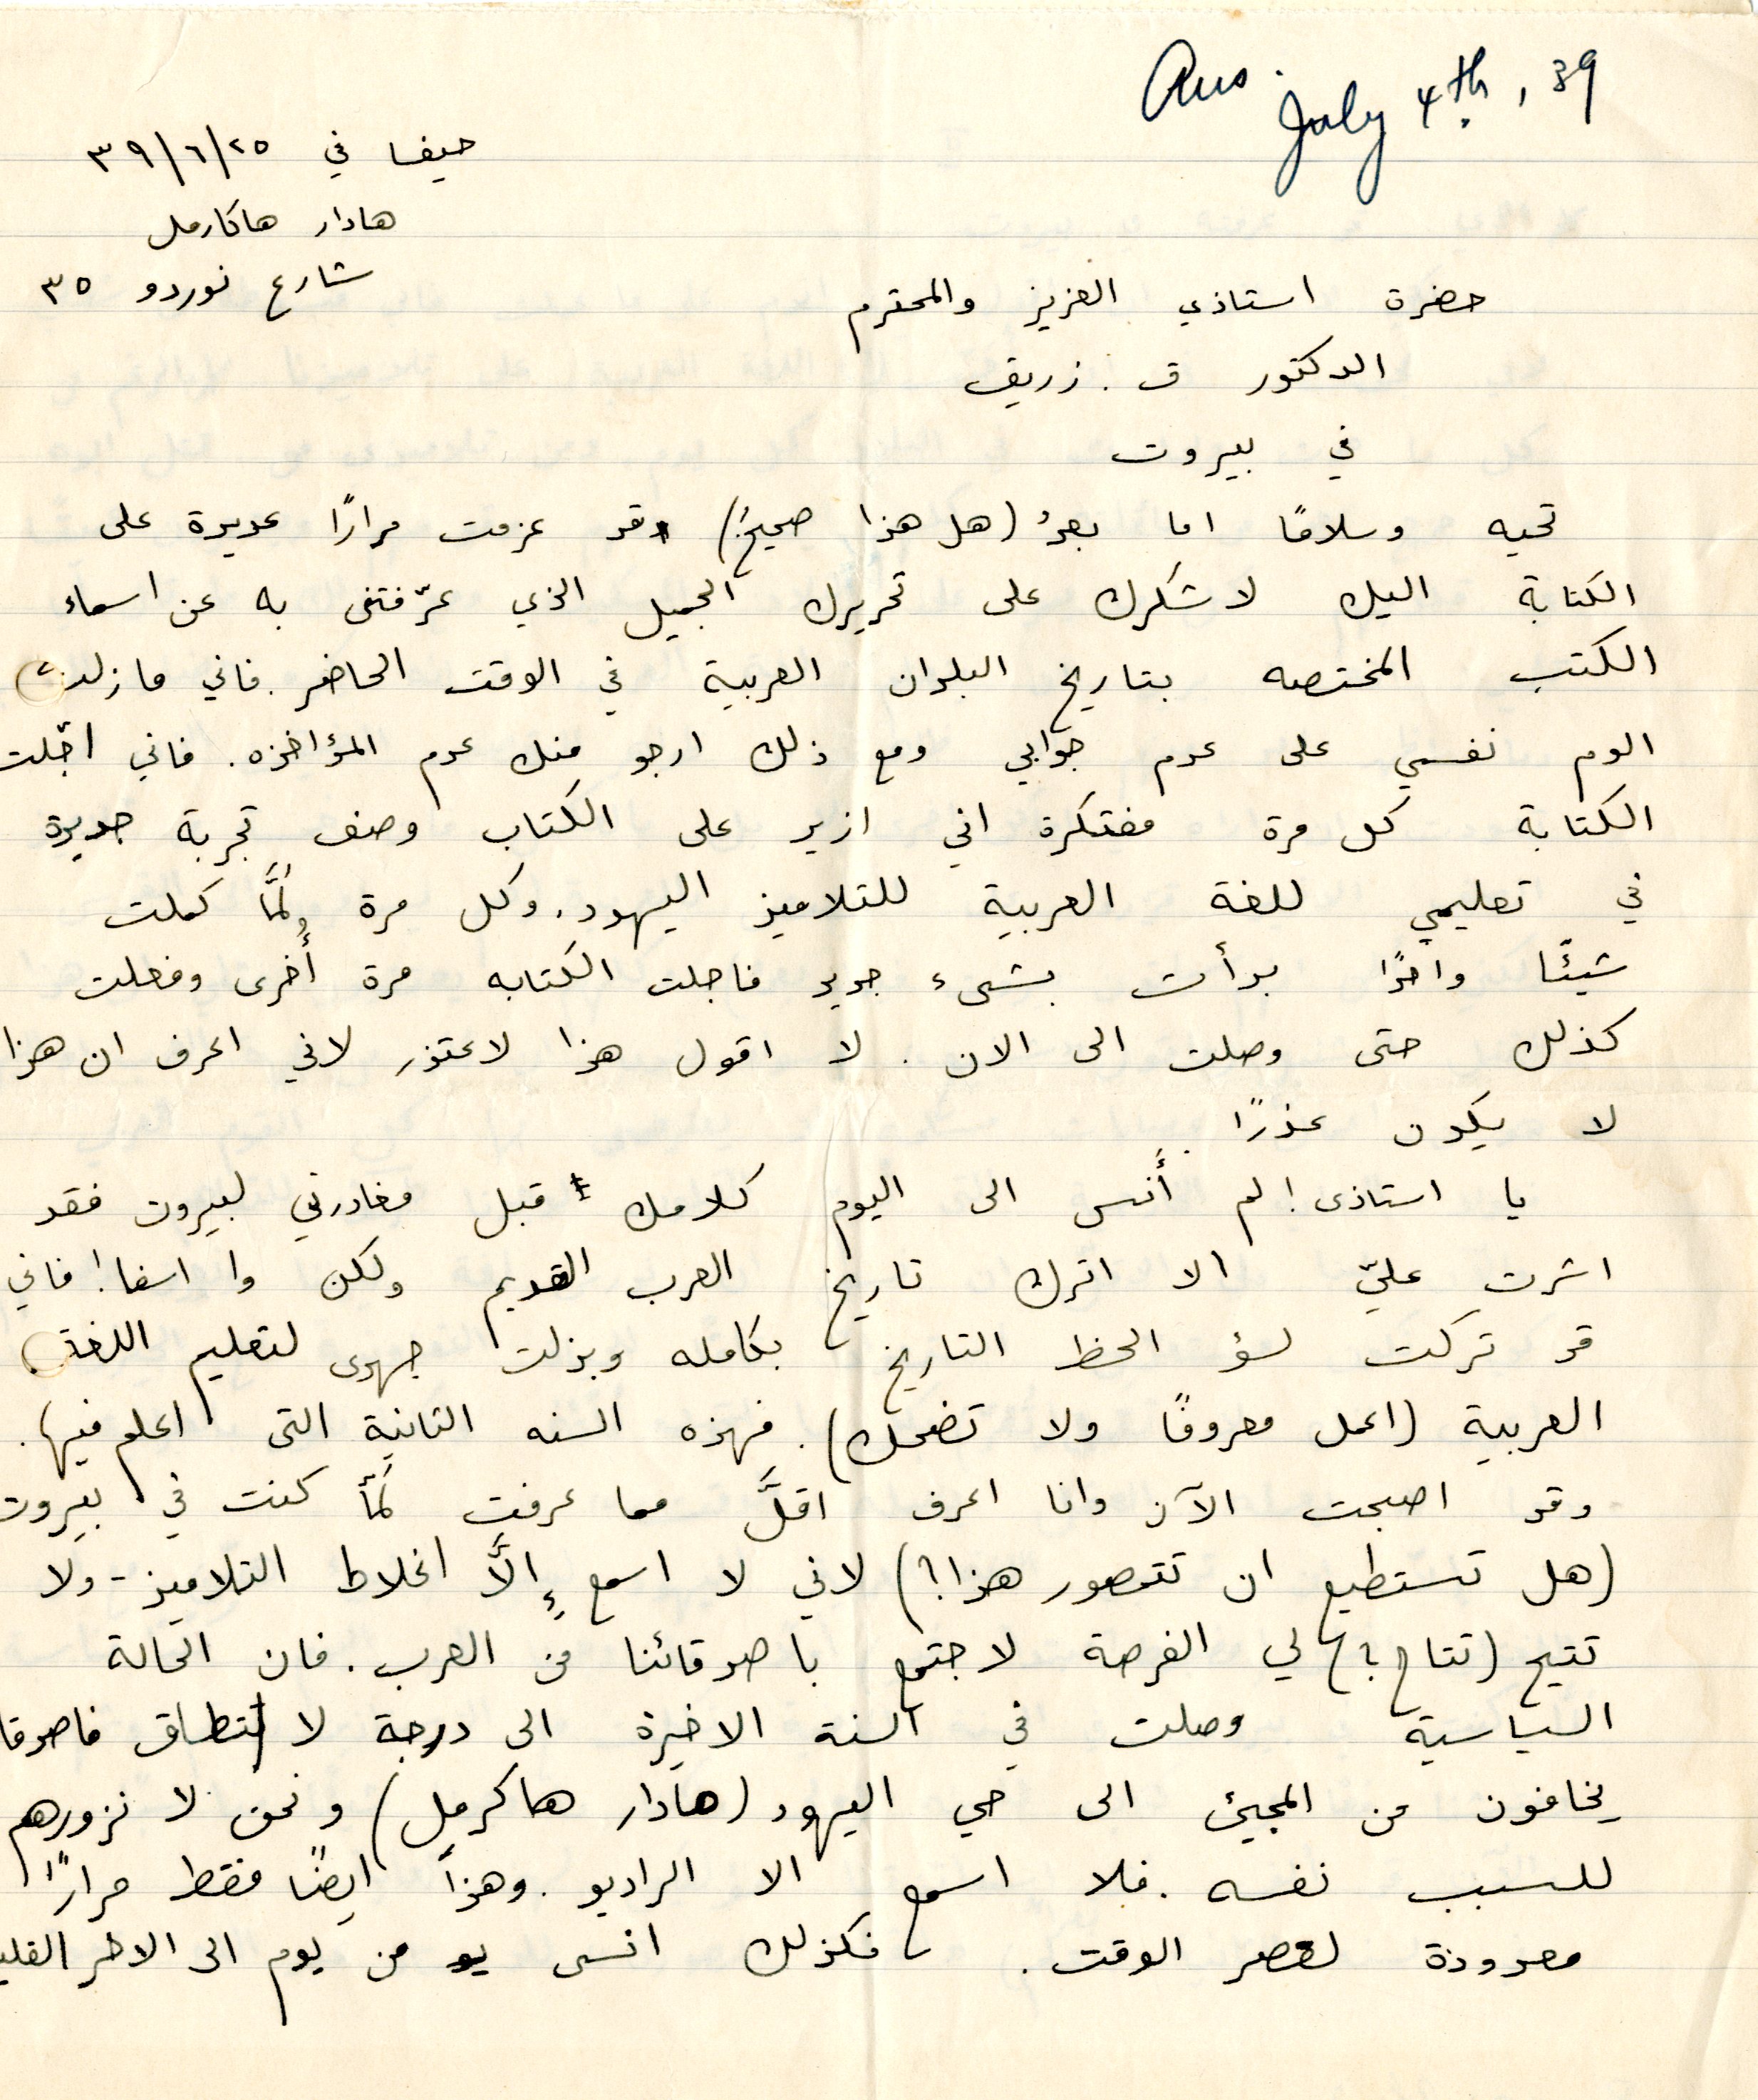 Ans. July 4th, 39
حيفا في ٢٥/٦/٣٩
هادار هاكارمل
شارع نوردو ٣٥
حضرة استاذي العزيز والمحترم
الدكتور ق. زريق
في بيروت
تحيه وسلامًا اما بعدُ (هل هذا صحيح؟) وقد عزمت مرارًا عديدة على
الكتابة اليك لاشكرك على تحريرك الجميل الذي عرّفتنى به عن اسماء
الكتب المختصه بتاريخ البلدان العربية في الوقت الحاضر. فاني ما زلت
الوم نفسي على عدم جوابي ومع ذلك ارجو منك عدم المؤاخذه. فاني اجّلت
الكتابة كل مرة مفتكرة اني ازيد على الكتاب وصف تجربة جديدة
في تعليمي للغة العربية للتلاميذ اليهود. وكل مرة ولمَّا كملت
شيئًا واحدًا بدأت بشىء جديد فاجلت الكتابه مرة أُخرى وفعلت
كذلك حتى وصلت الى الان. لا اقول هذا لاعتذر لاني اعرف ان هذا
لا يكون عذرًا.
يا استاذى! لم أَنس الى اليوم كلامك قبل مغادرتي لبيروت فقد
اشرت عليّ الا اترك تاريخ العرب القديم ولكن وا اسفا! فاني
قد تركت لسؤ الحظ التاريخ بكامله وبذلت جهدى لتعليم اللغة
العربية (اعمل معروفًا ولا تضحك). فهذه السنه الثانية التى اعلم فيها.
وقد اصبحت الآن وانا اعرف اقلَّ مما عرفت لمَّا كنت في بيروت
(هل تستطيع ان تتصور هذا؟) لاني لا اسمع إِلاَّ اغلاط التلاميذ - ولا
تتيح (تتاح؟) لي الفرصة لاجتمع باصدقائنا من العرب. فان الحالة
السياسية وصلت في السنة الاخيرة الى درجة لا تطاق فاصدقا
يخافون من المجيئ الى حي اليهود (هادار هاكرمل) ونحن لا نزورهم
للسبب نفسه. فلا اسمع الا الراديو. وهذا ايضًا فقط مرارًا
معدودة لقصر الوقت. فكذلك انسى من يوم الى الاخر القليـ